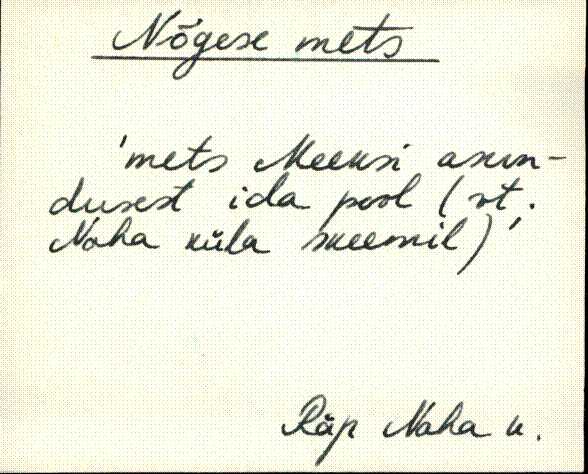 Nõgese mets
'mets Meeksi asun-
dusest ida pool (vt.
Naha küla skeemil)'
Räp Naha k.